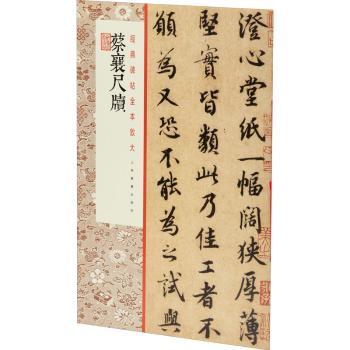 澄心堂紙一幅闊狹厚薄
堅實皆類此乃佳工者不
願為又恐不能為之試與
經典碑帖全本放大
蔡襄尺牘